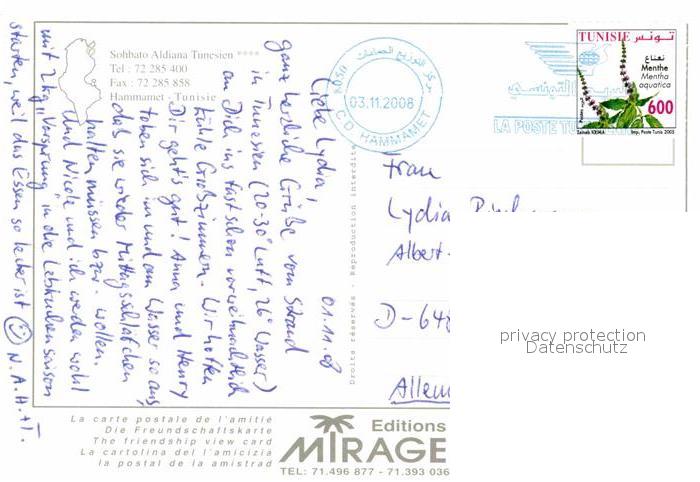 Sohbato Aldiana Tunesien ****
Tel : 72 285 400
Fax : 72 285 858
Hammamet - Tunisie
01.11.08
Liebe Lydia,
ganz herzliche Grüße vom Strand
in Tunesien (20-30° Luft, 26° Wasser)
an Dich ins fast schon vorweihnachtlich
kühle Großzimmern. Wir hoffen
Dir geht's gut! Anna und Henry
toben sich im und am Wasser so aus,
daß sie wieder Mittagsschläfchen
halten müssen bzw. wollen.
Und Nicole und ich werden wohl
mit 2 kg "Vorsprung" in die Lebkuchensaison
starten, weil das Essen so lecker ist N. A. H. + T.
Droits réservés - Reproduction interdite
مركز التوزيع الحمامات
8050
03.11.2008
C D HAMMAMET
البريد التونسي
LA POSTE TU
TUNISIE تونس
نعناع
Menthe
Mentha
aquatica
600
Zaineb KRIMA
Imp. Poste Tunis 2005
Frau
Lydia
Albert-
D-648
Allem
privacy protection
Datenschutz
La carte postale de l'amitié
Die Freundschaftskarte
The friendship view card
La cartolina dell'amicizia
la postal de la amistrad
Editions
MIRAGE
TEL: 71.496 877 - 71.393 036